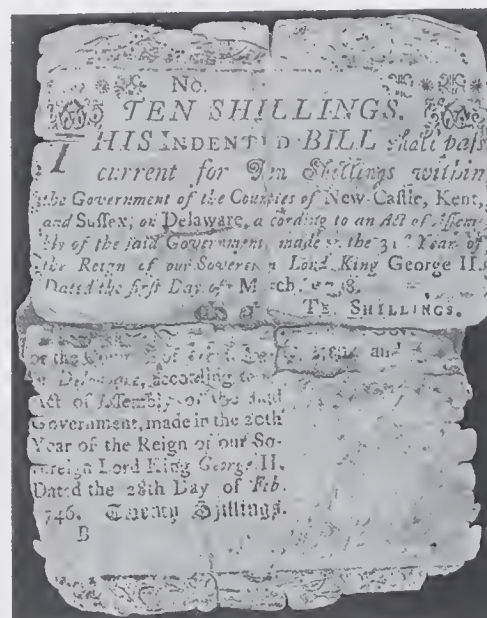 No.
TEN SHILLINGS.
THIS INDENTED BILL shall pass
current for Ten Shillings within
the Government of the Counties of New-Castle, Kent,
and Sussex, on Delaware, according to an Act of Assem-
bly of the said Government, made in the 31st Year of
the Reign of our Sovereign Lord King George II.
Dated the first Day of March, 1758.
TEN SHILLINGS.
and
on Delaware, according to
Act of Assembly of the said
Government, made in the 20th
Year of the Reign of our So-
vereign Lord King George II.
Dated the 28th Day of Feb.
1746. Twenty Shillings.
B